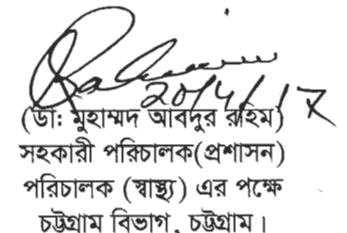 ২০/৪/১৭
(ডা: মুহাম্মদ আবদুর রহিম)
সহকারী পরিচালক(প্রশাসন)
পরিচালক (স্বাস্থ্য) এর পক্ষে
চট্টগ্রাম বিভাগ, চট্টগ্রাম।